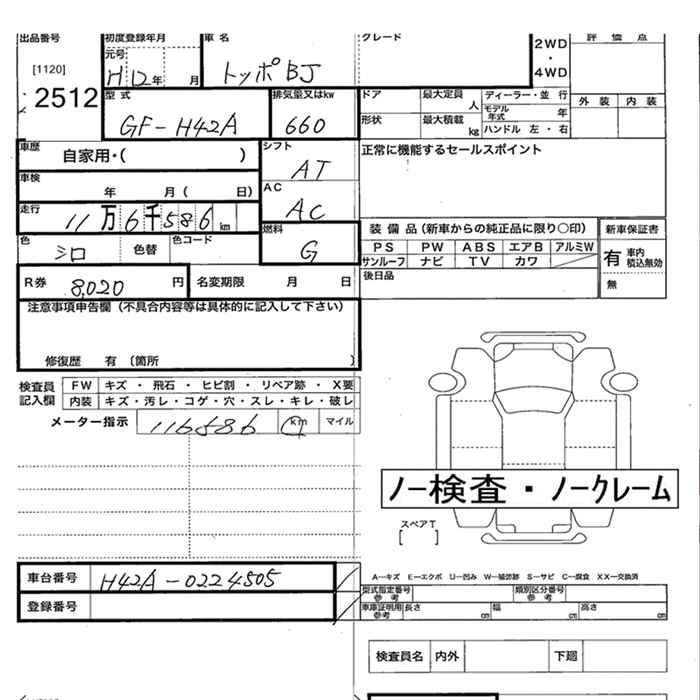 出品番号 初度登録年月 車名 グレード 2WD・4WD 評価点
[1120] 元号 H12年 月 トッポBJ
2512 型式 排気量又はkw ドア 最大定員 人 ディーラー・並行 外装 内装
GF-H42A 660 形状 最大積載 kg モデル年式 年
ハンドル 左・右
車歴 自家用・( ) シフト AT 正常に機能するセールスポイント
車検 年 月( 日) AC AC
走行 11万6千586km 燃料 G 装備品(新車からの純正品に限り○印) 新車保証書
色 シロ 色替 色コード PS PW ABS エアB アルミW 有 車内積込無効
サンルーフ ナビ TV カワ 無
R券 8,020円 名変期限 月 日 後日品
注意事項申告欄(不具合内容等は具体的に記入して下さい)
修復歴 有 〔箇所 〕
検査員記入欄 FW キズ・飛石・ヒビ割・リペア跡・X要
内装 キズ・汚レ・コゲ・穴・スレ・キレ・破レ
メーター指示 116586 km マイル
ノー検査・ノークレーム
スペアT
[ ]
車台番号 H42A-0224505 A-キズ E-エクボ U-凹み W-補修跡 S-サビ C-腐食 XX-交換済
登録番号 型式指定番号参考 類別区分番号参考
車庫証明用参考 長さ cm 幅 cm 高さ cm
検査員名 内外 下廻